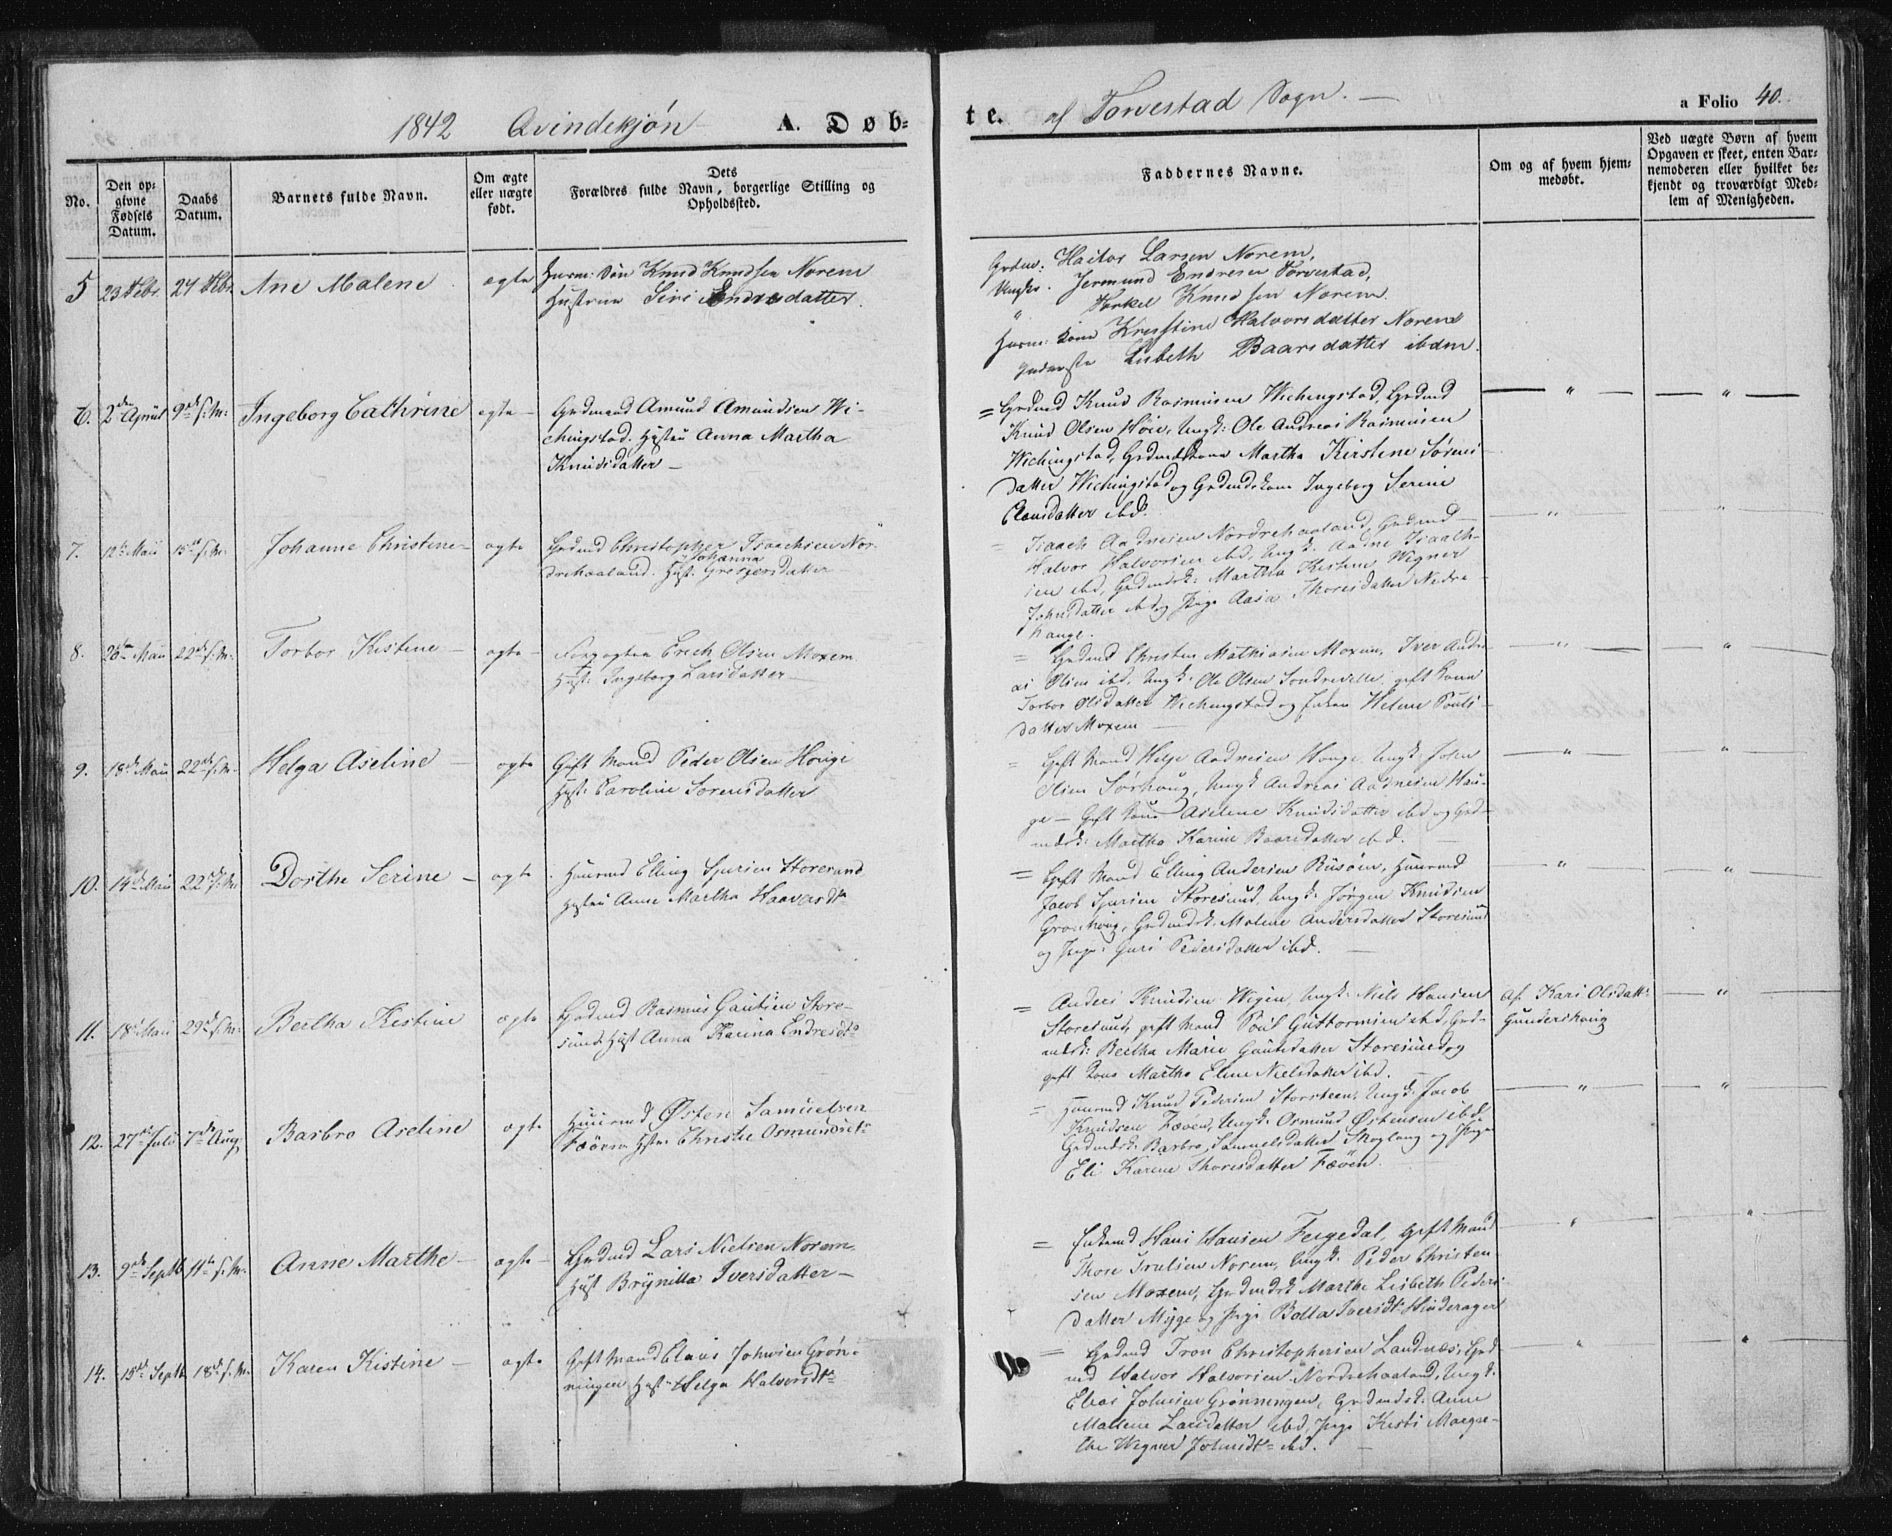 1842 Qvindekjøn A. Døb-
te. af Torvestad Sogn. —
a Folio 40.
No.
Den op-
givne
Fødsels
Datum.
Daabs
Datum.
Barnets fulde Navn.
Om ægte
eller uægte
født.
Dets
Forældres fulde Navn, borgerlige Stilling og
Opholdssted.
Faddernes Navne.
Om og af hvem hjem-
medøbt.
Ved uægte Børn af hvem
Opgaven er skeet, enten Bar-
nemoderen eller hvilket be-
kjendt og troværdigt Med-
lem af Menigheden.
5 23 Febr. 27 Febr. Ane Malene ægte
Knud Knudsen Norem
Hustrue Siri Endresdatter.
Haitor Larsen Norem,
Jermund Endresen Torvestad,
Torkel Knudsen Norem.
Kone Kristine Halvorsdatter Norem
Lisbeth Baarsdatter ibdm.
6. 2den April 9de s. M: Ingeborg Cathrine ægte —
Grdmand Amund Amundsen Wi-
chingstad. Hustru Anna Martha
Knudsdatter —
= Grdmd Knud Rasmusen Wichingstad, Grdmd
Knud Olsen Høie, Ungk: Ole Andreas Rasmusen
Wichingstad, Grdmdskone Martha Kirstine Sørens-
datter Wichingstad og Grdmdskone Ingeborg Serine
Clausdatter ibd.
7. 12te Maii 15de s. M: Johanne Christine — ægte
Grdmd Christopher Isaachsen Nor-
Johanna
drehaaland. Hust: Gregersdatter —
= Isaach Aadnesen Nordrehaaland, Grdmd
Halvor Halvorsen ibd, Ungk: Aadne Isaach-
sen ibd, Grdmdsk: Martha Kistine Wigner
Johnsdatter ibd og Pige Aasa Thoresdatter Nedre
hauge.
8. 22de s. M: Torbor Kistine — ægte —
Erich Olsen Moxem
Hust: Ingeborg Larsdatter —
= Grdmd Christen Mathiasen Moxem, Iver Andre
as Olsen ibd. Ungk: Ole Olsen Sondrevelle, gift Kone
Torbor Olsdatter Wichingstad og Enken Helene Pouls-
datter Moxem —
9. 18de Maii 22de s. M: Helga Aseline — ægte
Gift Mand Peder Olsen Houge
Hust: Caroline Sorensdatter
= Gift Mand Helje Aadnesen Houge, Ungk: John
Olsen Sørhoug, Ungk Andreas Aadnesen Hau-
ge — Gift Kone Aselene Knudsdatter ibd og Grd-
mdsk: Martha Karine Baarsdatter ibd.
10. 14de Maii 22de s. M: Dorthe Serine — ægte
Huusmd Elling Sjursen Storesund
Hustru Anne Martha Haavardsdtr
= Gift Mand Elling Andersen Risøen, Huusmd
Jacob Sjursen Storesund, Ungk: Jørgen Knudsen
Gronhoug, Grdmdsk: Malene Andersdatter Storesund
og Pige: Guri Pedersdatter ibd. —
11. 18de Maii 29de s. M: Bertha Kistine ægte
Grdmd Rasmus Gautsen Store-
sund. Hust Anna Karina Endresdtr
= Anders Knudsen Wigen, Ungk: Niels Hansen
Storesund, gift Mand Poul Guttormsen ibd, Grd-
mdsk: Bertha Marie Gautsdatter Storesund og
gift Kone Martha Eline Nielsdatter ibd.
Af Kari Olsdatt:
Gundershoug
12. 27de Juli 7de Aug: Barbro Aseline ægte
Huusmd Østen Samuelsen
Fæøen Hust: Christie Ormundsdtr
= Huusmd Knud Pedersen Storsteen, Ungk: Jacob
Knudsen Fæøen, Ungk: Ormund Østensen ibd
Grdmdsk: Barbro Samuelsdatter Skoglang og Pige
Eli Karine Thoresdatter Fæøen.
13. 9de Septb 11te s. M: Anne Marthe — ægte —
Grdmd Lars Nielsen Norem
Hust Brynilla Iversdatter —
= Enkemd Hans Hansen Feigedal, Gift Mand
Thore Trulsen Norem, Ungk: Peder Christen-
sen Moxem, Grdmdsk Marthe Lisbeth Peders-
datter Myge og Pige Bolla Iversdtr Hinderager
14. 15de Septb 18de s. M: Karen Kistine — ægte
Gift Mand Claus Johnsen Grøn-
ningen Hust: Helga Halvorsdtr
= Grdmd Tron Christophersen Landnæs, Grd
md Halvor Halvorsen Nordrehaaland, Ungk:
Elias Johnsen Grønningen, Grdmdsk: Anne
Mallene Larsdatter ibd Pige Kirsti Margre-
the Wigner Johnsdtr ibd.